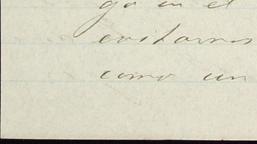 go en el
evitarnos
como un